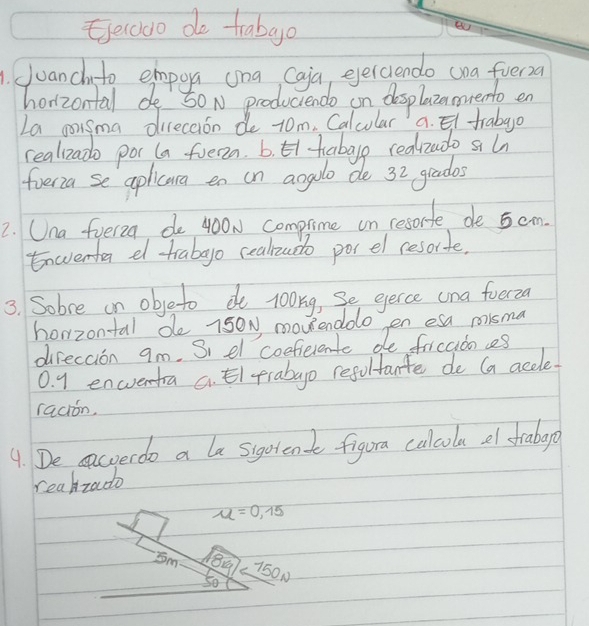 Ejercicio de trabajo
1. Juanchito empuja una Caja, ejerciendo una fuerza
horizontal de 50N produciendo un desplazamiento en
La misma dirección de 10m. Calcular a. El trabajo
realizado por la fuerza. b. El trabajo realizado si la
fuerza se aplicara en un angulo de 32 grados
2. Una fuerza de 400N comprime un resorte de 5cm.
Encuentra el trabajo realizado por el resorte.
3. Sobre un objeto de 100kg, Se ejerce una fuerza
horizontal de 150N, moviendolo en esa misma
dirección 9m. Si el coeficiente de fricción es
0.1 encuentra a. El trabajo resultante de la acele-
ración.
4. De acuerdo a la siguiente figura calcula el trabajo
realizado
u=0,15
5m
18kg
150N
50